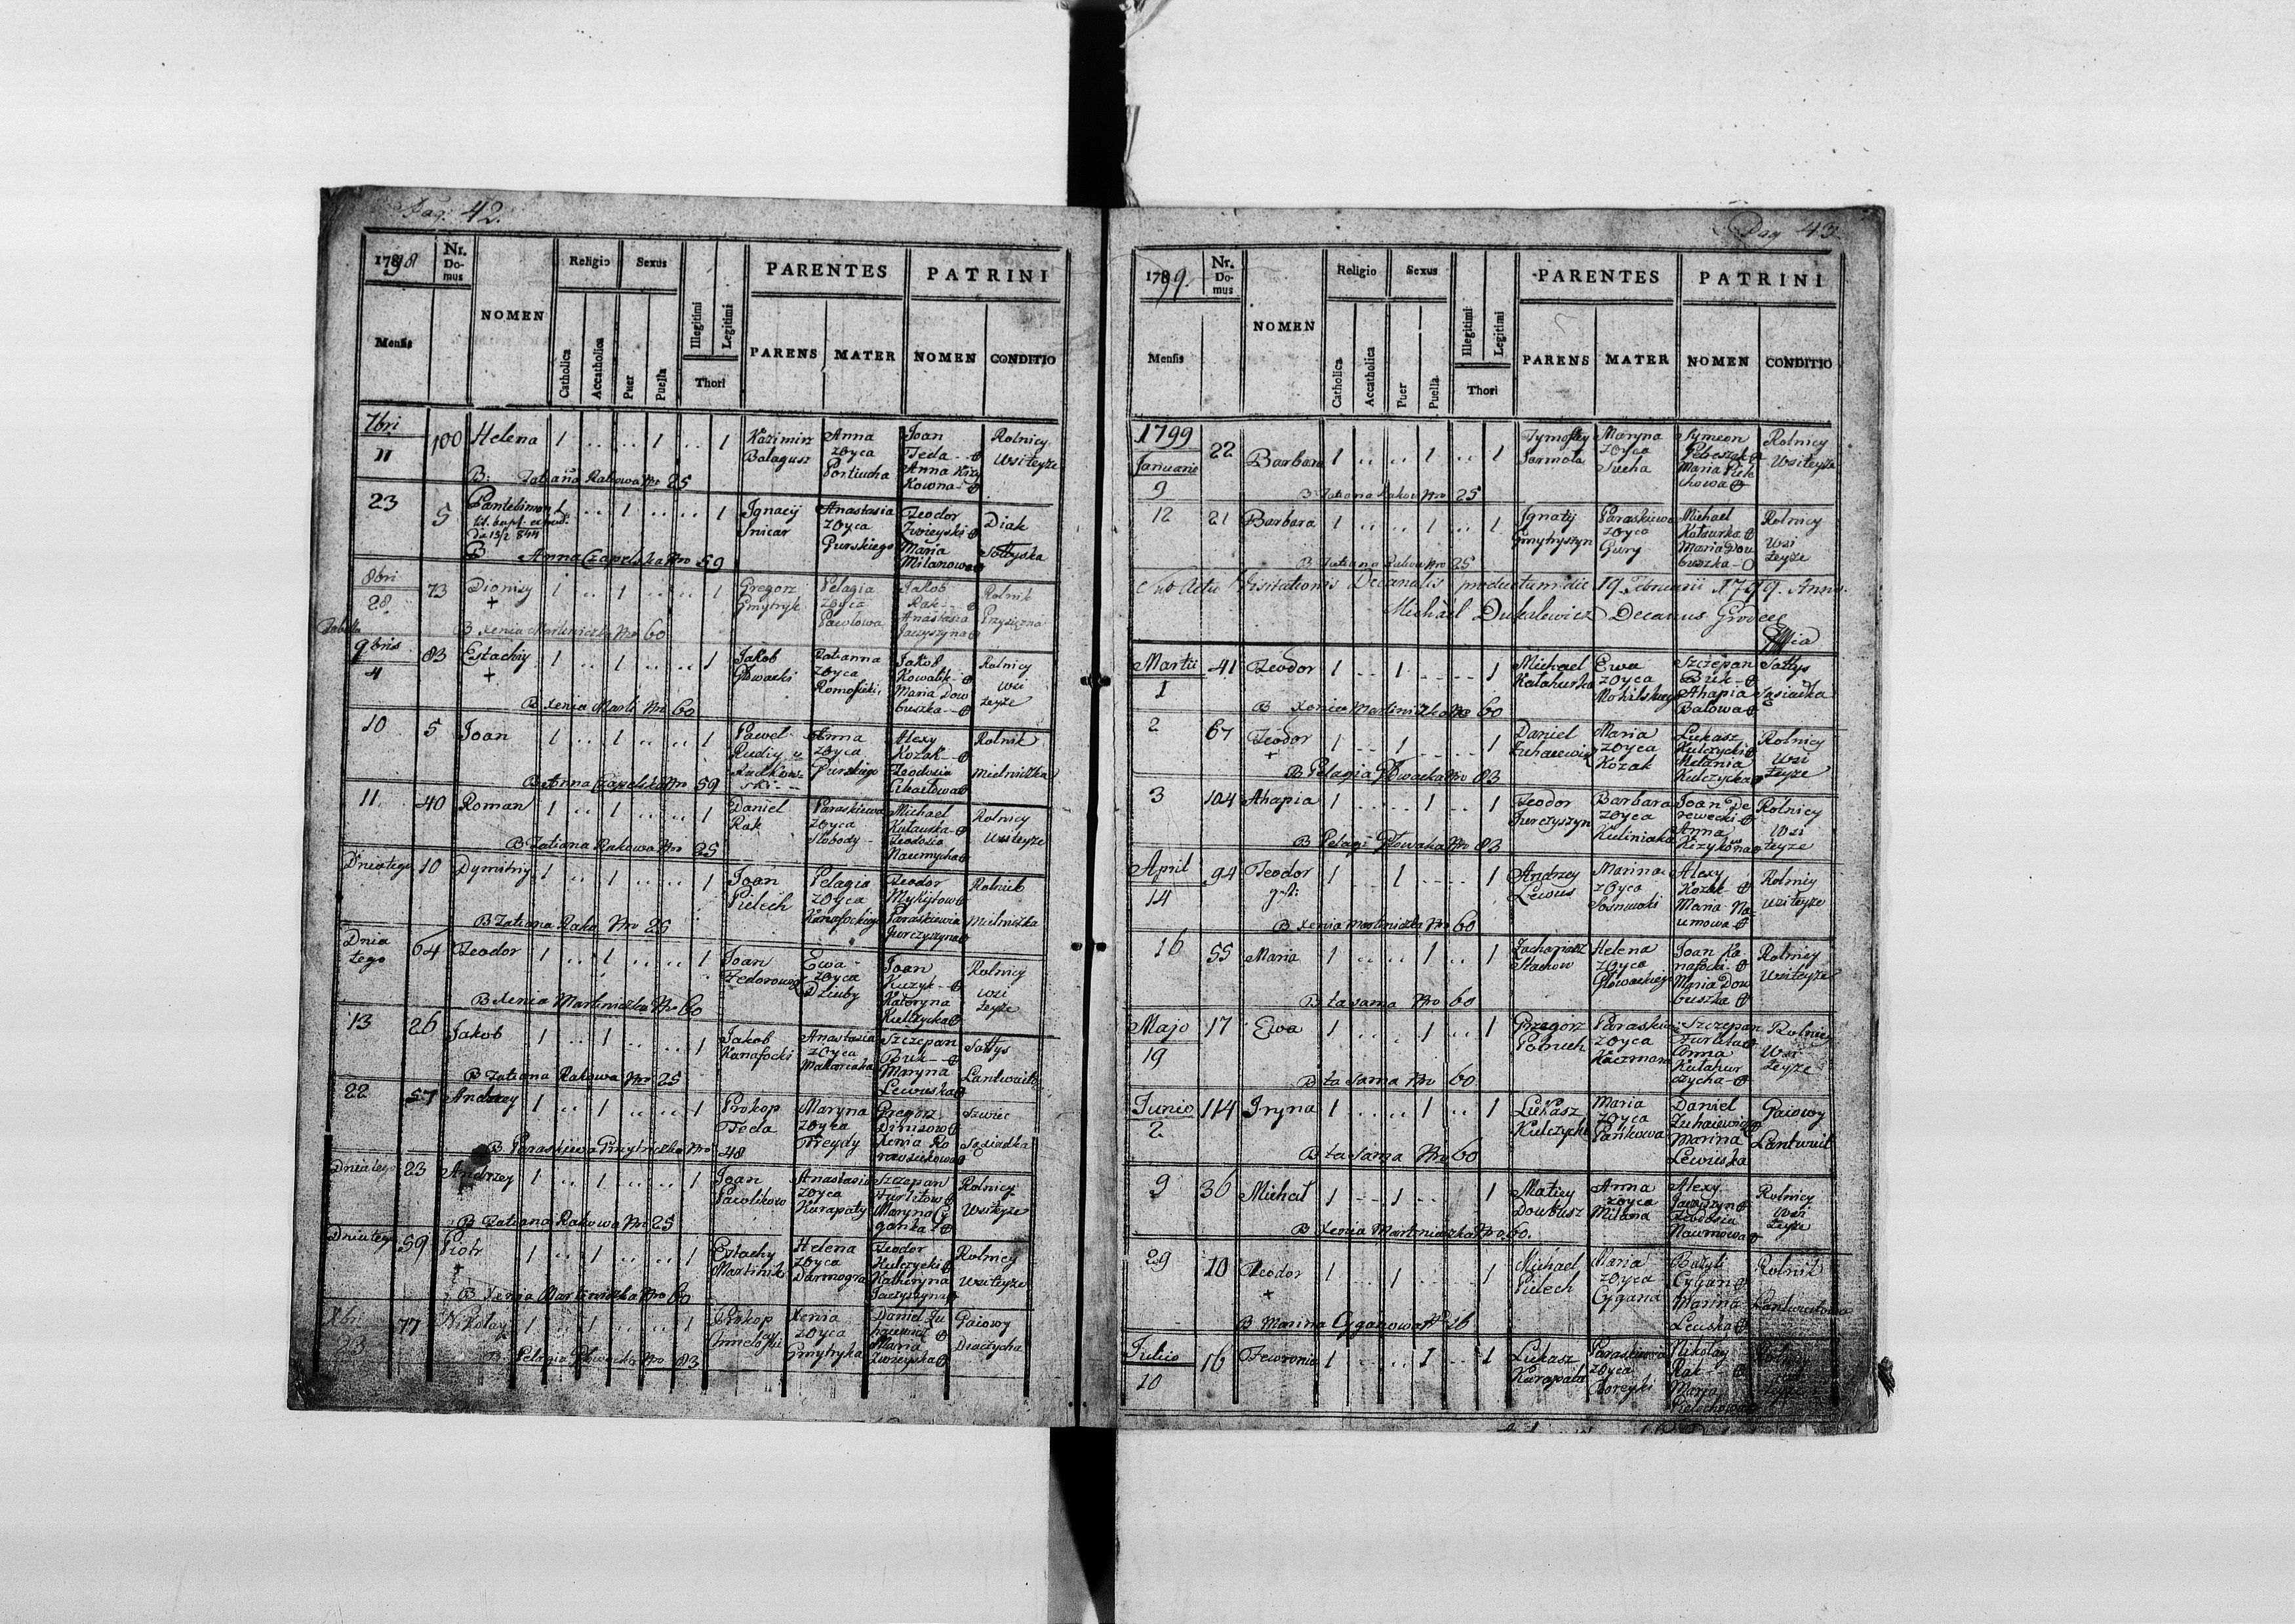 Pag: 42.
1798
Nr. Domus
NOMEN
Religio
Sexus
PARENTES
PATRINI
Mensis
Catholica
Accatholica
Puer
Puella
Illegitimi
Legitimi
Thori
PARENS
MATER
NOMEN
CONDITIO
7bri
11
100 Helena 1 .. .. 1 .. 1
Kazimirz
Balagusz
Anna
zoyca
Joan
Feda
Anna
kowna
Rolnicy
wsiteyże
B: Tatiana Rakowa Nro 25
23
5
Pantelimon 1 .. 1 .. .. 1
Ignacy
Snicar
Anastasia
zoyca
Gurskiego
Teodor
Maria
Milanowa
Diak
Sołtyska
B Anna Czapelska Nro 59
8bri
28
73 Dionizy 1 .. 1 .. .. 1
Gregorz
Gmytryk
Pelagia
zoyca
Pawlowa
Jakob
Rak
Anastasia
Jaczyszyna
Rolnik
B Xenia Martiniczka Nro 60
9bris
4
83 Estachiy 1 .. 1 .. .. 1
Jakob
Głowacki
Tatianna
zoyca
Jakob
Kowalik
Maria Dow
buszka
Rolnicy
wsi
teyże
B Xenia Marti Nro 60
10 5 Joan 1 .. 1 .. .. 1
Pawel
Anna
zoyca
Gurskiego
Alexy
Kozak
Teodosia
Rolnik
Mielniczka
B Anna Czapelska Nro 59
11. 40 Roman 1 .. 1 .. .. 1
Daniel
Rak
Paraskiewa
zoyca
Slobody
Michael
Teodosia
Naumycha
Rolnicy
wsiteyże
B Tatiana Rakowa Nro 25
Dniatego 10 Dymitriy 1 .. 1 .. .. 1
Joan
Pielech
Pelagia
zoyca
Kanafockiego
Teodor
Mykytow
Paraskiewia
Jurczyszyna
Rolnik
Mielniczka
B Tatiana Rako Nro 25
Dnia
tego
64 Teodor 1 .. 1 .. .. 1
Joan
Fedorowicz
Ewa
zoyca
Dziuby
Joan
Kuzyk
Kateryna
Kulczycka
Rolnicy
wsi
teyże
B Xenia Martiniczka Nro 60
13 26 Jakob 1 .. 1 .. .. 1
Jakob
Kanafocki
Anastasia
zoyca
Makariaka
Szczepan
Buk
Maryna
Lewuska
Sołtys
Lantwuit
B Tatiana Rakowa Nro 25
22 57 Andrzey 1 .. 1 .. .. 1
Prokop
Feda
Maryna
zoyca
Freydy
Gregorz
Dimisow
Xenia
Szwiec
Sąsiadka
B Paraskiewa Gmytriczka Nro 48
Dniatego 23 Andrzey 1 .. 1 .. .. 1
Joan
Pawlikow
Anastasia
zoyca
Kurapaty
Szczepan
Furletow
Maryna Cy
ganka
Rolnicy
wsiteyże
B Tatiana Rakowa Nro 25
Dniatego 59 Piotr 1 .. 1 .. .. 1
Estachy
Martinik
Helena
zoyca
Darmogra
Teodor
Kulczycki
Katheryna
Jaczyszyna
Rolnicy
wsiteyże
B Xenia Martiniczka Nro 60
Xbri
23
77 Nikolay 1 .. 1 .. .. 1
Prokop
Xenia
zoyca
Gmytryka
Daniel
Maria
Gaiowy
Diaczycha
B. Pelagia Głowacka Nro 83
Pag 43.
1799.
Nr. Domus
NOMEN
Religio
Sexus
PARENTES
PATRINI
Mensis
Catholica
Accatholica
Puer
Puella
Illegitimi
Legitimi
Thori
PARENS
MATER
NOMEN
CONDITIO
1799
Januarii
9
22 Barbara 1 .. .. 1 .. 1
Tymofiey
Sarmota
Maryna
zoyca
Sucha
Symeon
Maria
Rolnicy
Wsiteyże
B Tatiana Rakow Nro 25
12 21 Barbara 1 .. .. 1 .. 1
Ignatiy
Gmytryszyn
Paraskiewa
zoyca
Gury
Michael
Maria Dow
buszka
Rolnicy
wsi
teyże
B Tatiana Rakow Nro 25
Sub Actu Visitationis Decanalis productum die 19. Februarii 1799. Anno.
Michael Dukalewicz Decanus Grodec
Martii
1
41 Teodor 1 .. 1 .. .. 1
Michael
Ewa
zoyca
Szczepan
Buk
Ahapia
Balowa
Sołtys
Sąsiadka
B Xenia Martiniczka Nro 60
2 67 Teodor 1 .. 1 .. .. 1
Daniel
Maria
zoyca
Kozak
Lukasz
Kulczycki
Melania
Kulczycka
Rolnicy
wsi
teyże
B Pelagia Głowacka Nro 83
3 104 Ahapia 1 .. .. 1 .. 1
Teodor
Jurczyszyn
Barbara
zoyca
Kuliniaka
Joan De
rewecki
Anna
Rolnicy
wsi
teyże
B Pelagi Głowaka Nro 83
April
14
94 Teodor 1 .. 1 .. .. 1
Andrzey
Lewus
Marina
zoyca
Sosnowski
Alexy
Kozak
Maria Na
umowa
Rolnicy
wsiteyże
B Xenia Martiniczka Nro 60
16 55 Maria 1 .. .. 1 .. 1
Zachariasz
Stachow
Helena
zoyca
Głowackiego
Joan Ka
nafocki
Maria Dow
buszka
Rolnicy
wsiteyże
B tasama Nro 60
Majo
19
17 Ewa 1 .. .. 1 .. 1
Grzegorz
Paraskiew
zoyca
Kaczmara
Szczepan
Furleta
Anna
Kulahur
czycha
Rolnicy
wsi
teyże
B ta sama Nro 60
Junio
2
114 Iryna 1 .. .. 1 .. 1
Lukasz
Kulczycki
Maria
zoyca
Pańkowa
Daniel
Marina
Lewuska
Gaiowy
Lantwuit
B ta sama Nro 60
9 36 Michał 1 .. 1 .. .. 1
Matiey
Doubusz
Anna
zoyca
Milana
Alexy
Teodosia
Naumowa
Rolnicy
wsi
teyże
B Xenia Martiniczka Nro. 60.
29 10 Teodor 1 .. 1 .. .. 1
Michael
Pielech
Maria
zoyca
Cygana
Bazyli
Cygan
Marina
Leuska
Rolnik
Lantwuitowa
B Marina Cyganowa Nr 26
Julio
10
16 Fewronia 1 .. .. 1 .. 1
Lukasz
Kurapata
Paraskiewa
zoyca
Nikolay
Rak
Maria
Pielechowa
Rolnicy